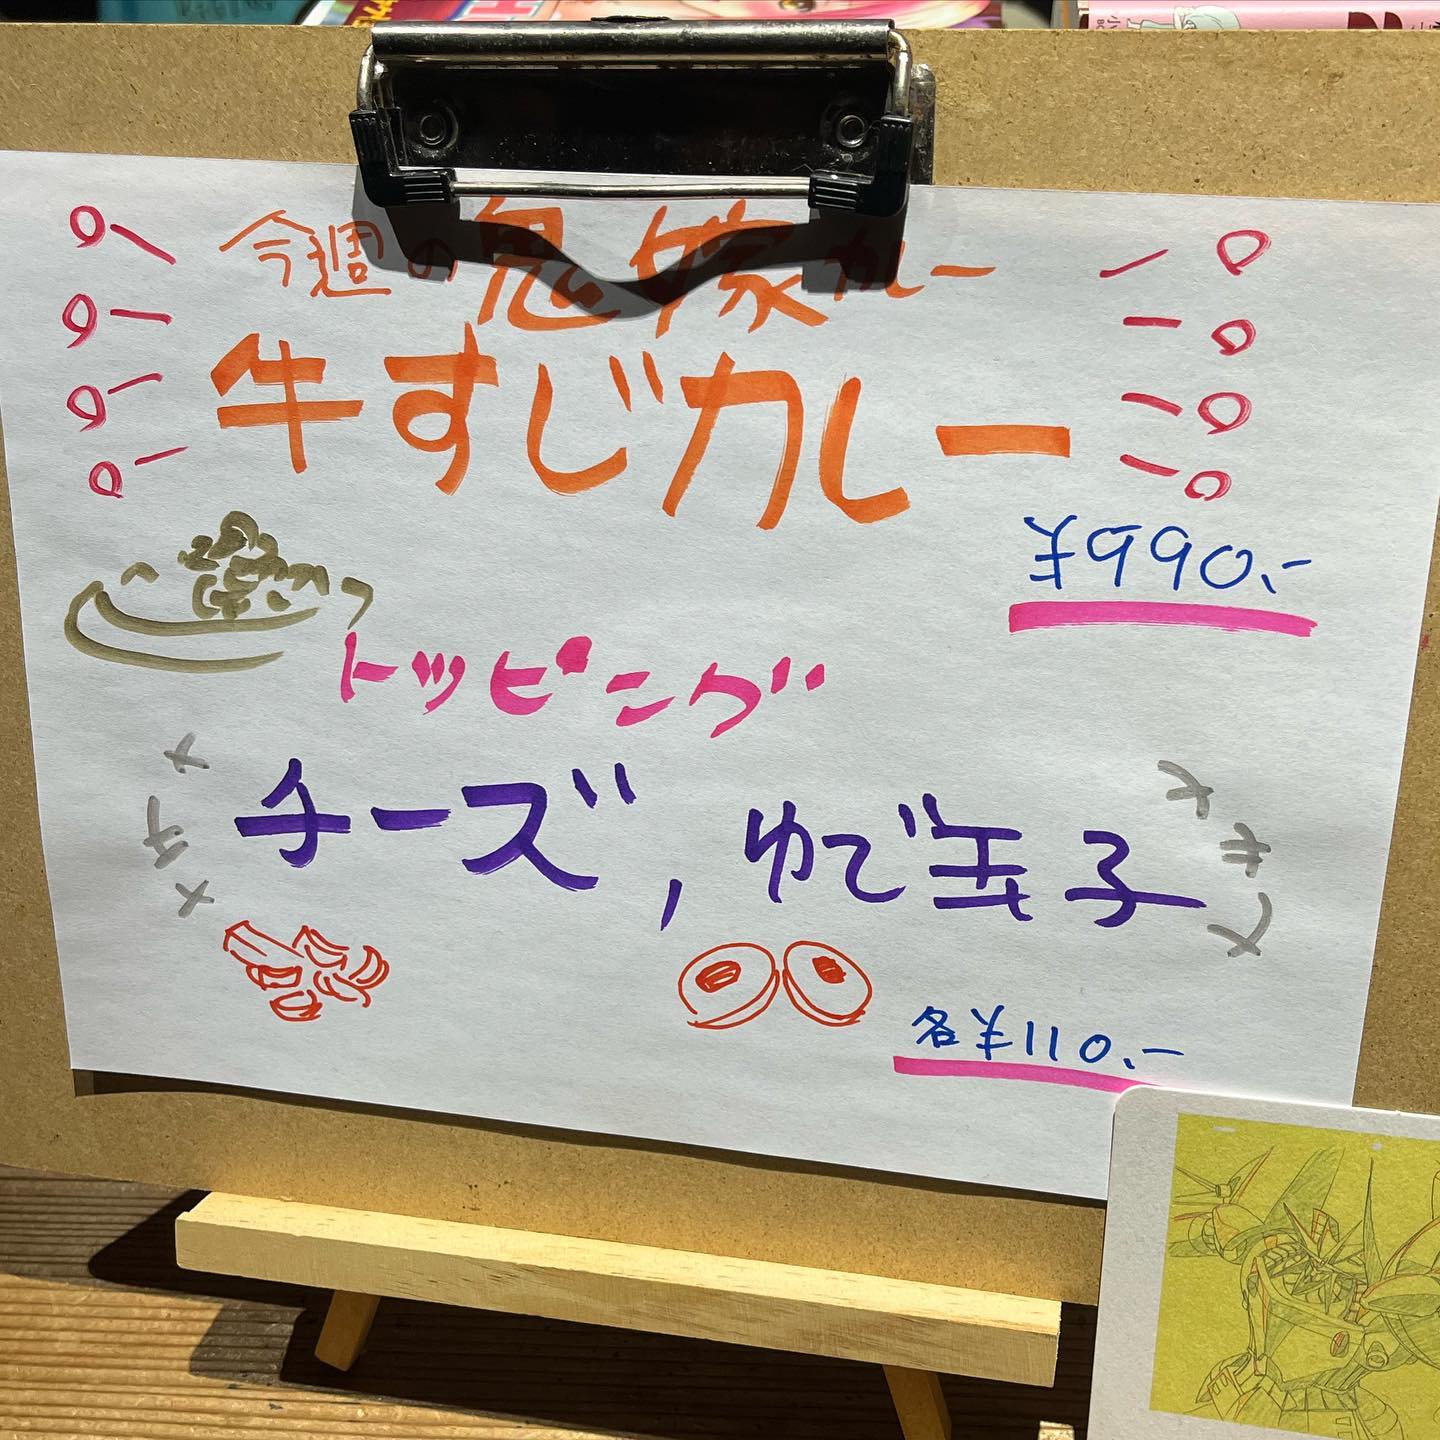 今週の鬼嫁カレー
牛すじカレー
¥990.-
トッピング
チーズ,ゆで玉子
各¥110.-